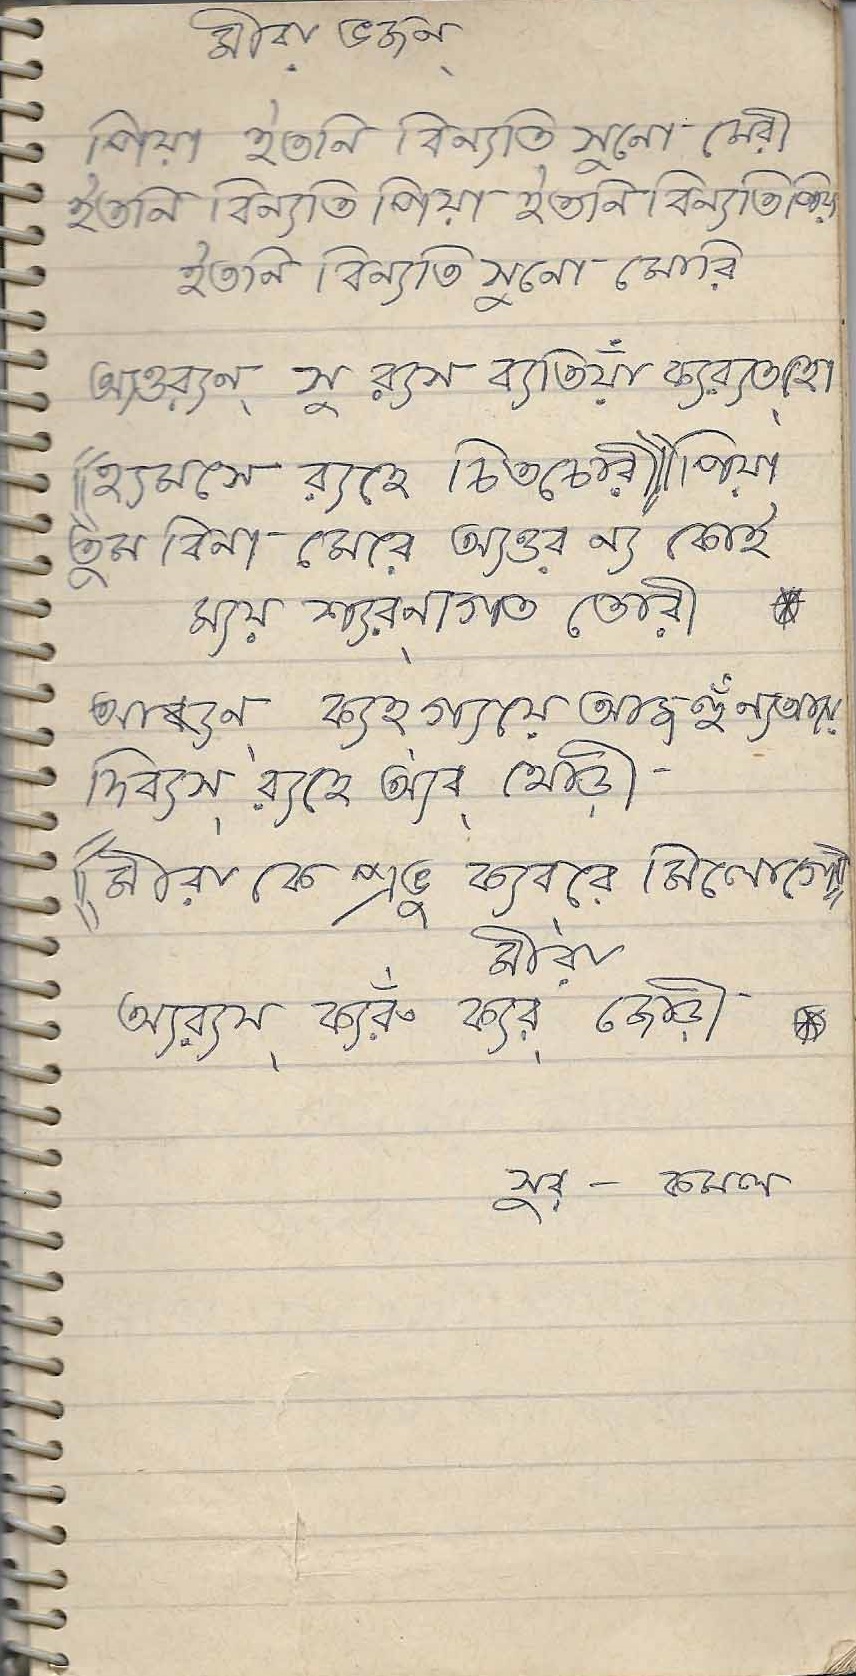 মীরা ভজন্
পিয়া ইতনি বিন্যতি সুনো মেরী
ইতনি বিন্যতি পিয়া ইতনি বিন্যতি পিয়া
ইতনি বিন্যতি সুনো মোরি
অ্যওর‍্যন্ সু র‍্যস ব্যতিয়াঁ ক্যর‍্যত্ হো
((হ্যমসে র‍্যহে চিতচোরী)) পিয়া
তুম বিনা মেরে অ্যওর ন্য কোই
ম্যয় শ্যরণাগত তোরী
আব্যন্ ক্যহ্ গ্যয়ে আজহুঁ ন্যআয়ে
দিব্যস্ র‍্যহে অ্যব্ থোড়ী
((মীরা কে প্রভু ক্যবরে মিলোগে))
মীরা
অ্যর‍্যয্ ক্যরুঁ ক্যর্ জোড়ী
সুর - কমল